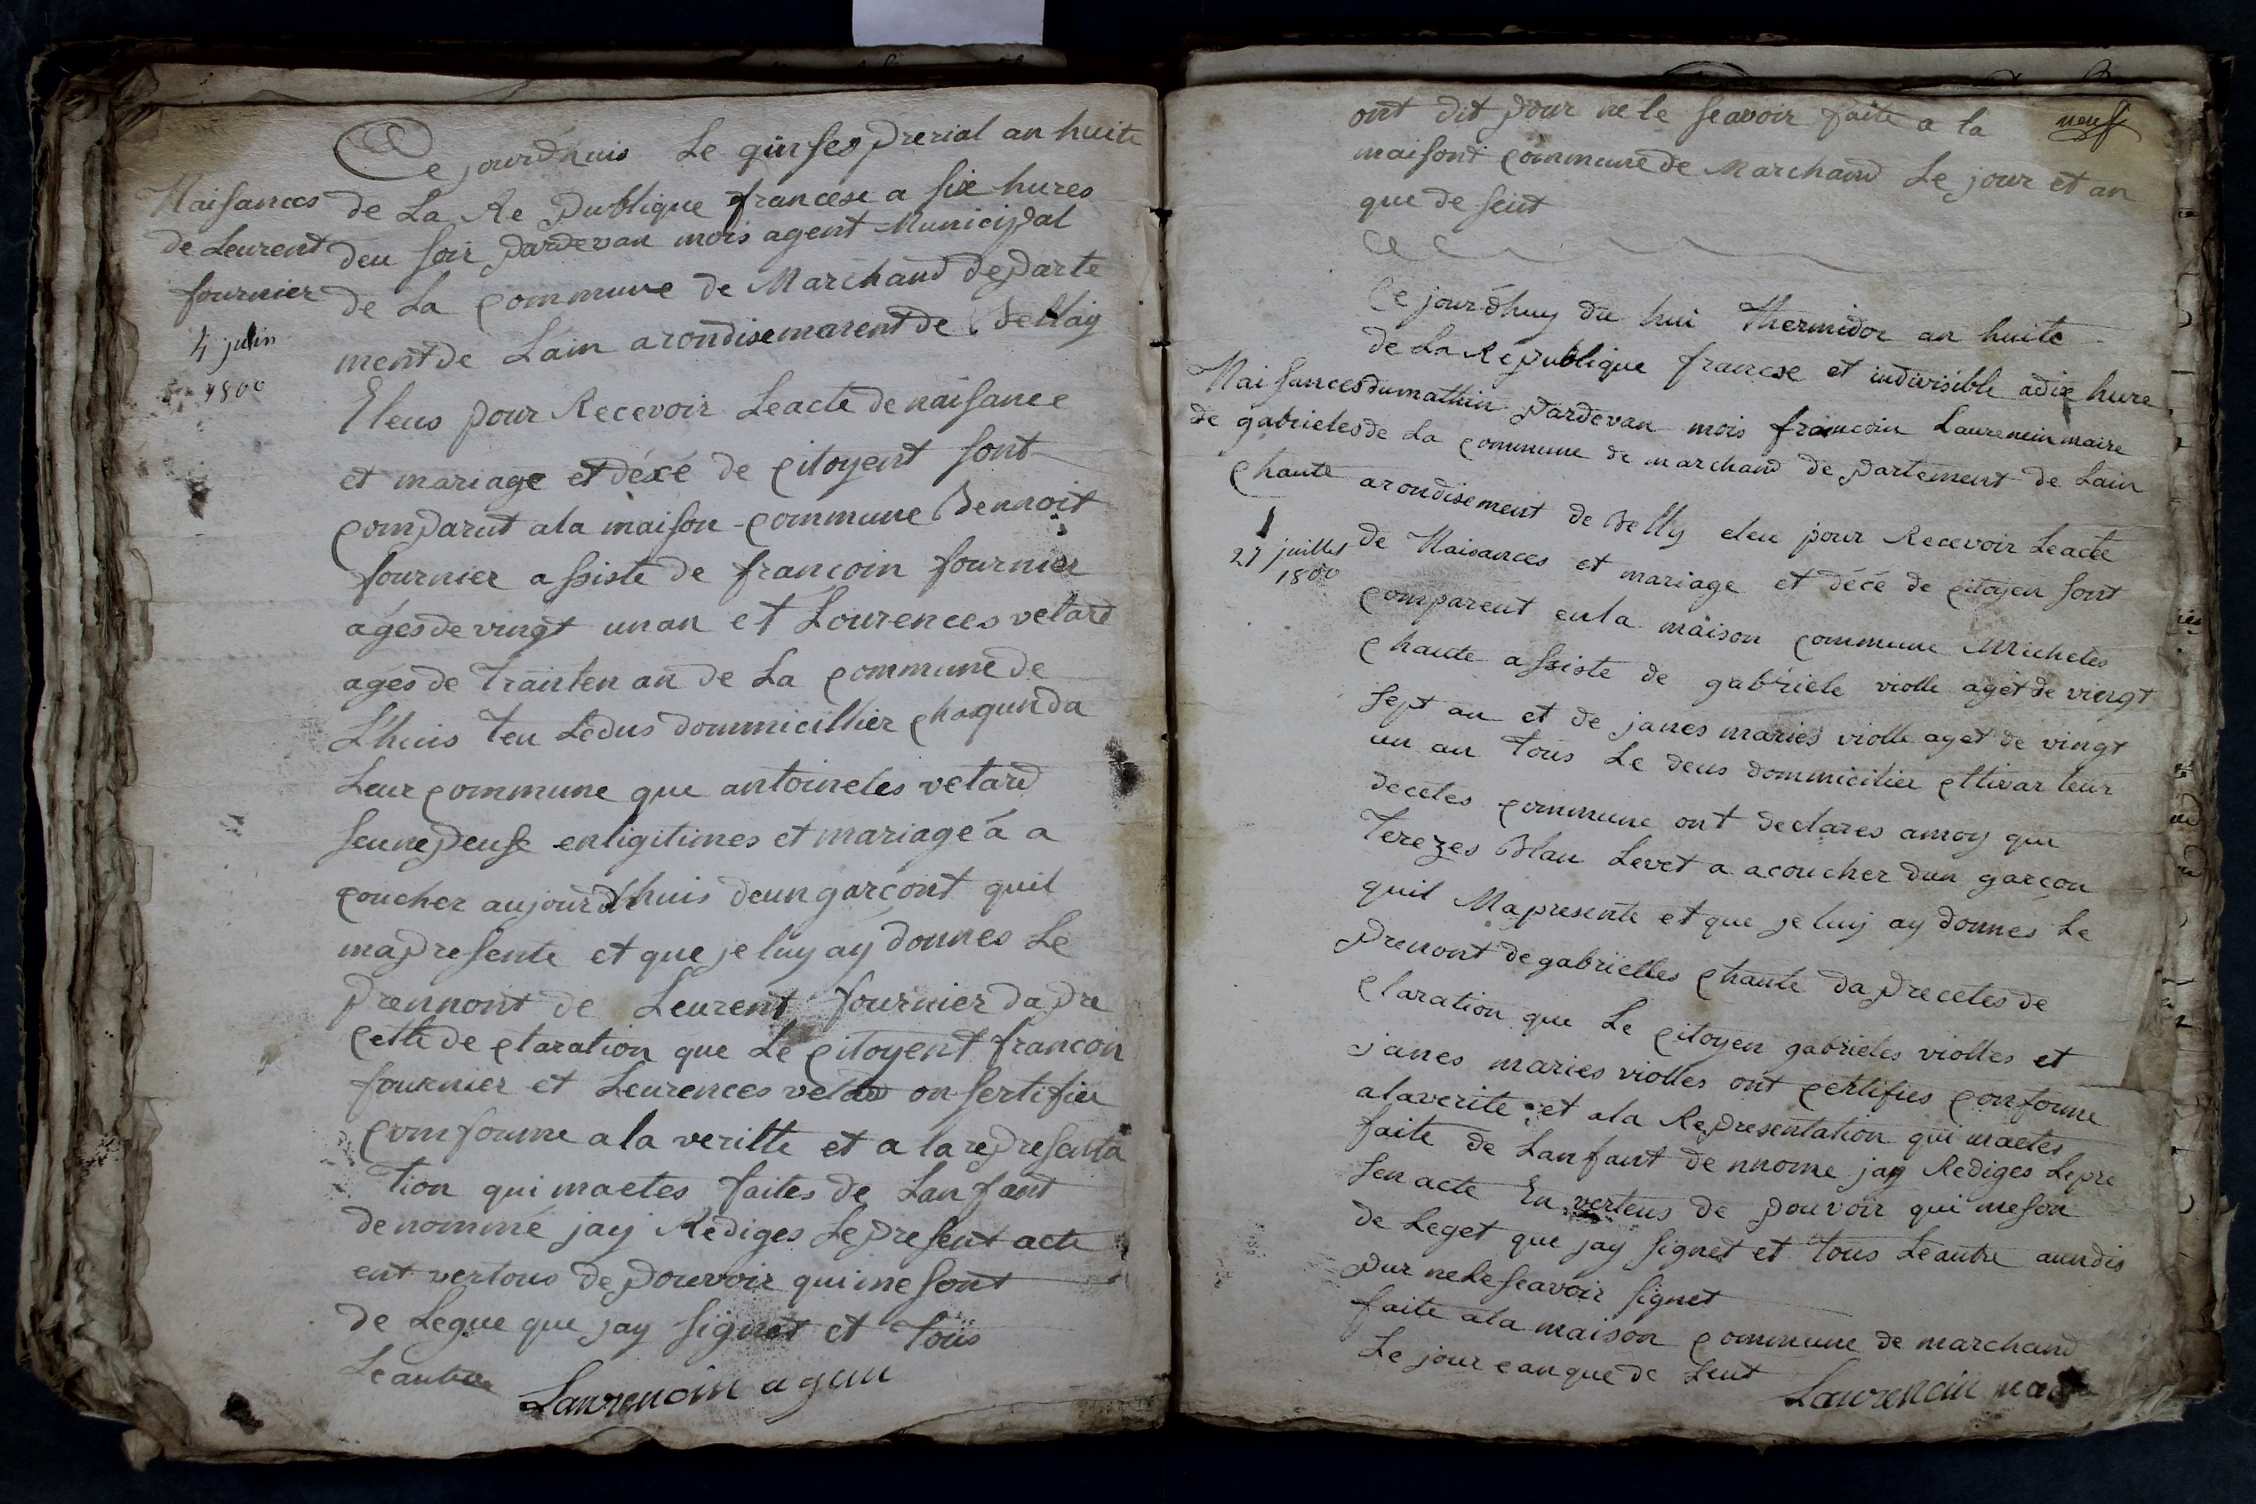 Ce jourdhuis Le qinses prerial an huite
Naisances
de Leurent
fournier
4 juin
1800
de La Re publique francese a six hures
deu soir pardevan mois agent Municipal
de La commune de Marchand departe
ment de Lain arondisemarent de Bellaÿ
Eleus pour Recevoir Leacte de naisance
et mariage et décé de citoyent sont
comparut ala maison commune Bennoit
fournier assiste de francoin fournier
ágés de vingt un an et Lourences vetard
agés de Trainten an de La commune de
Lhuis Teu Ledus dommicillier chaqunda
Leur commune que antoineles vetard
seunepeuse enligitimes et mariage á a
coucher aujourdhuis deun garcont quil
mapresente et que je luy aÿ donnes Le
prennont de Leurent fournier da pre
cette de claration que Le citoyent francoin
fournier et Leurences vetard on sertifier
comfourme a la veritte et a la represanta
Tion qui maetes faites de Lanfant
denommé jaÿ Rediges Le present acte
ent vertous de pouvoir qui me sont
de Legue que jay signet et Tous
Leautre
Laurencin agen
neuf
ont dit pour ne le seavoir faite a la
maisont commune de Marchand Le jour et an
que de seut
Ce jourdhuy du hui Thermidor an huite
de La Republique francse et indivisible adix hure
Naisances
de gabrieles
chaute
1
27 juilles
1800
dumathin pardevan mois framcoin Laurencin maire
de La commune de marchand de partement de Lain
arondisement de Belly eleu pour Recevoir Leacte
de Naisances et mariage et décé de citoyen sont
comparent enla maison commune Micheles
chaute assiste de gabriele violle agét de vingt
sept an et de janes mariés violle aget de vingt
un an Tous Le deus dommicilier cttivar leur
deceles commune ont declares amoy que
Terezes Blau Levet a acoucher dun garcon
quil Mapresente et que je luy ay donnés Le
prenont de gabriëlles chaute da preceles de
claration que Le citoyen gabrieles violles et
janes maries violles ont certifies conforme
alaverite et ala Representation qui maetes
faite de Lanfant de nnome jay Rediges Lepre
sen acte En verteus de pouvoir qui meson
de Leget que jaÿ signet et Tous Leautre aundis
pur nele seavoir signet
faite ala maison commune de marchand
Le jour e an que de seut
Laurencin maire